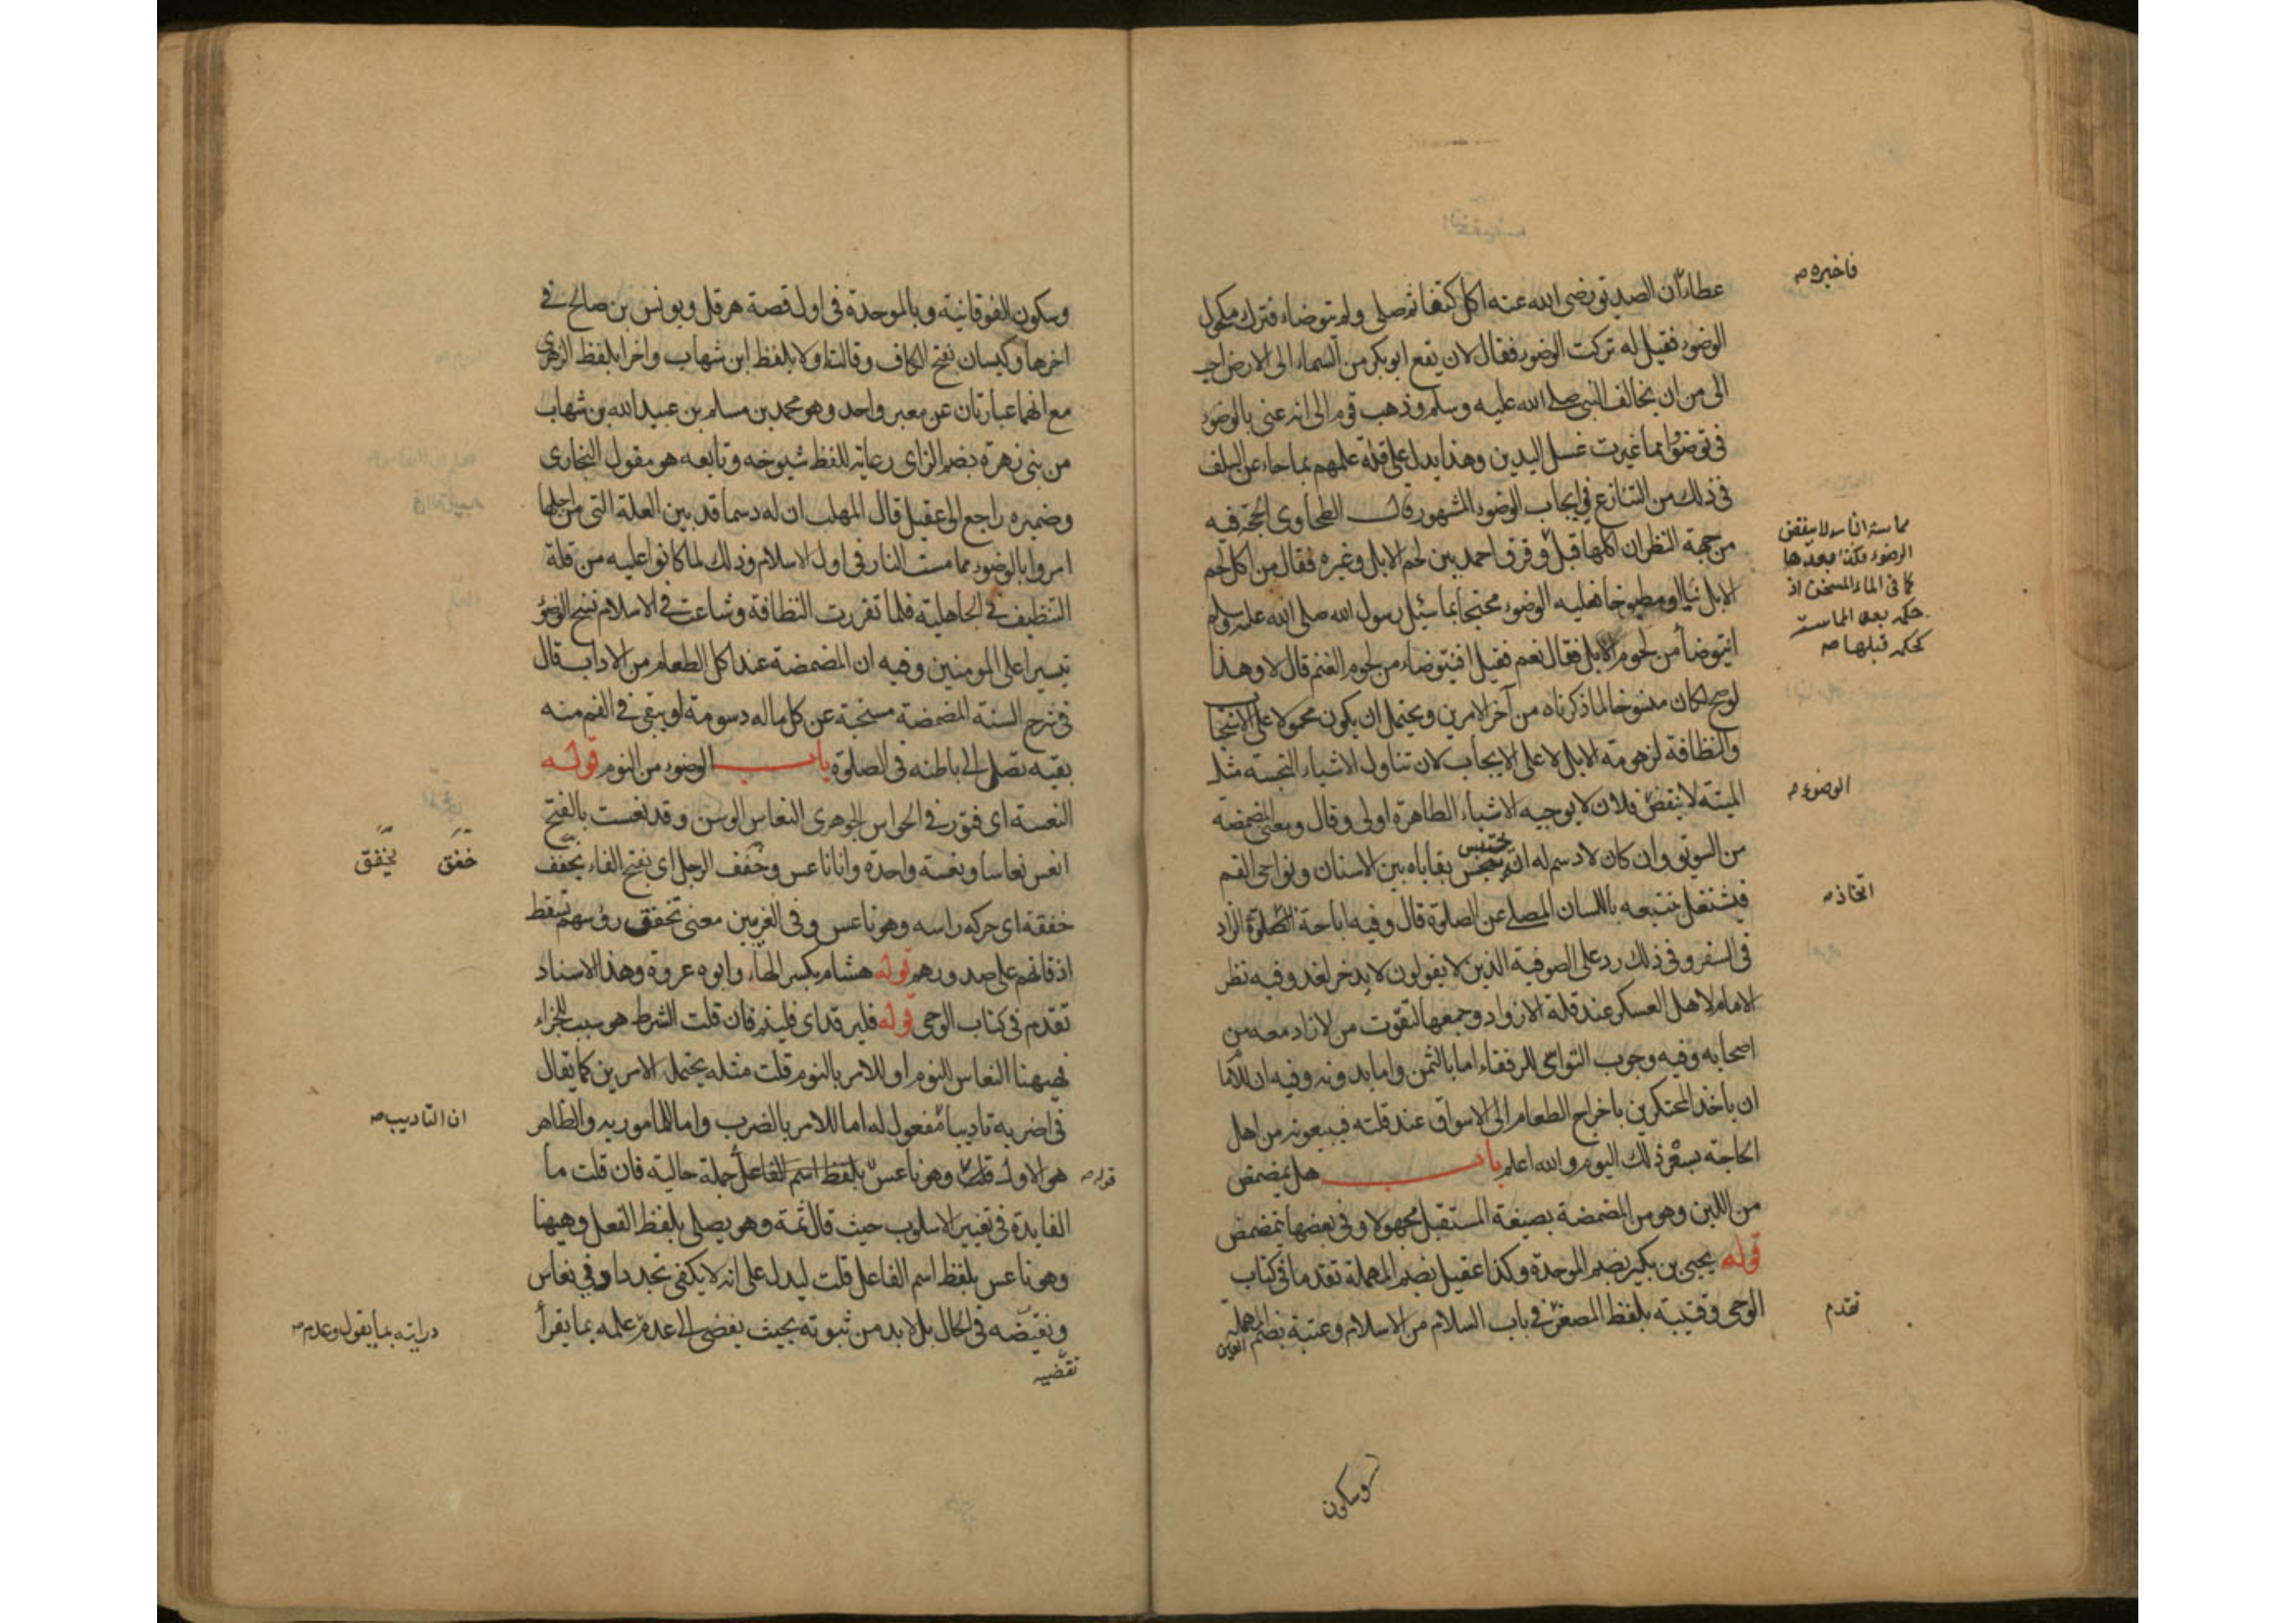 عطاء ان الصديق رضى الله عنه اكل كتفا ثم صلى ولم يتوضاء فترك مكحول
فاخبره صه
الوضوء فقيل له تركت الوضوء فقال لان يقع ابوبكر من السماء الى الارض احب
الى من ان يخالف النبى صلى الله عليه وسلم وذهب قوم الى انه عنى بالوضوء
فى توضؤا مما غيرت غسل اليدين وهذا يدل على قلة علمهم بما جاء عن السلف
فى ذلك من التنازع فى ايجاب الوضوء المشهور قال الطحاوى الحجة فيه
من جهة النظر ان اكلها قبل وفرق احمد بين لحم الابل وغيره فقال من اكل لحم
مماسة النار لا ينقض
الوضوء فكذا بعدها
كما فى الماء المسخن اذ
حكمه بعد المماسة
كحكمه قبلها صه
الابل نيا او مطبوخا فعليه الوضوء محتجا بما سئل رسول الله صلى الله عليه وسلم
انتوضأ من لحوم الابل فقال نعم فقيل افنتوضاء من لحوم الغنم قال لا وهذا
لو صح لكان منسوخا لما ذكرناه من آخر الامرين ويحتمل ان يكون محمولا على الاستحبا
والنظافة لزهومة الابل لا على الايجاب لان تناول الاشياء النجسة مثل
الميتة لا ينقض فلان لا يوجبه الاشياء الطاهرة اولى وقال ومعنى المضمضة
الوضوء صه
من السويق وان كان لا دسم له انه يحتبس بقاياه بين الاسنان ونواحى الفم
فيشتغل بتتبعه باللسان المصلى عن الصلوة قال وفيه اباحة الزاد
اتخاذ صه
فى السفر وفى ذلك رد على الصوفية الذين لا يقولون لا يدخر لغد وفيه نظر
الامام لاهل العسكر عند قلة الازواد وجمعها لتقوت من لا زاد معه من
اصحابه وفيه وجوب التواسى للرفقاء اما بالثمن واما بدونه وفيه ان للاما
ان يأخذ المحتكرين باخراج الطعام الى الاسواق عند قلته فيبيعونه من اهل
الحاجة بسعر ذلك اليوم والله اعلم باب هل يمضمض
من اللبن وهو من المضمضة بصيغة المستقبل مجهولا وفى بعضها تمضمض
قوله يحيى بن بكير بضم الموحدة وكذا عقيل بضم المهملة تقدما فى كتاب
الوحى وقتيبة بلفظ المصغر فى باب السلام من الاسلام وعتبة بضم العين المهملة
تقدم
وسكون
وسكون الفوقانية وبالموحدة فى اول قصة هرقل ويونس بن صالح فى
اخرها وكيسان بفتح الكاف وقالت اولا بلفظ ابن شهاب واخرا بلفظ الزهرى
مع انهما عبارتان عن معبر واحد وهو محمد بن مسلم بن عبيد الله بن شهاب
من بنى زهرة بضم الزاى رعاية للفظ شيوخه وتابعه هو مقول البخارى
وضميره راجع الى عقيل قال المهلب ان له دسما قد بين العلة التى من اجلها
امروا بالوضوء مما مست النار فى اول الاسلام وذلك لما كانوا عليه من قلة
التنظيف فى الجاهلية فلما تقررت النظافة وشاعت فى الاسلام نسخ الوضوء
تيسيرا على المومنين وفيه ان المضمضة عند اكل الطعام من الاداب قال
فى شرح السنة المضمضة مستحبة عن كل ما له دسومة او يبقى فى الفم منه
بقية تصل الى باطنه فى الصلوة باب الوضوء من النوم قوله
النعسة اى فتور فى الحواس الجوهرى النعاس الوسن وقد نعست بالفتح
انعس نعاسا ونعسة واحدة وانا ناعس وخفف الرجل اى بفتح الفاء يخفف
خفق يخفق
خفقة اى حركه راسه وهو ناعس وفى الغريبين معنى تخفق رؤسهم تسقط
اذقانهم على صدورهم قوله هشام بكسر الهاء وابوه عروة وهذا الاسناد
تقدم فى كتاب الوحى قوله فليرقد اى فلينم فان قلت الشرط هو سبب للجزاء
فهيهنا النعاس للنوم او للامر بالنوم قلت مثله يحتمل الامرين كما يقال
فى اضربه تاديبا مفعول له اما للامر بالضرب واما للمامور به والظاهر
ان التاديب صه
هو الاول قلت وهو ناعس بلفظ اسم الفاعل جملة حالية فان قلت ما
قوله صه
الفايدة فى تغيير الاسلوب حيث قال ثمة وهو يصلى بلفظ الفعل وهيهنا
وهو ناعس بلفظ اسم الفاعل قلت ليدل على انه لا يكفى تجدد ادنى نعاس
ونقيضه فى الحال بل لا بد من ثبوته بحيث يفضى الى عدم علمه بما يقرأ
درايته بما يقول وعدم صه
تقضيه